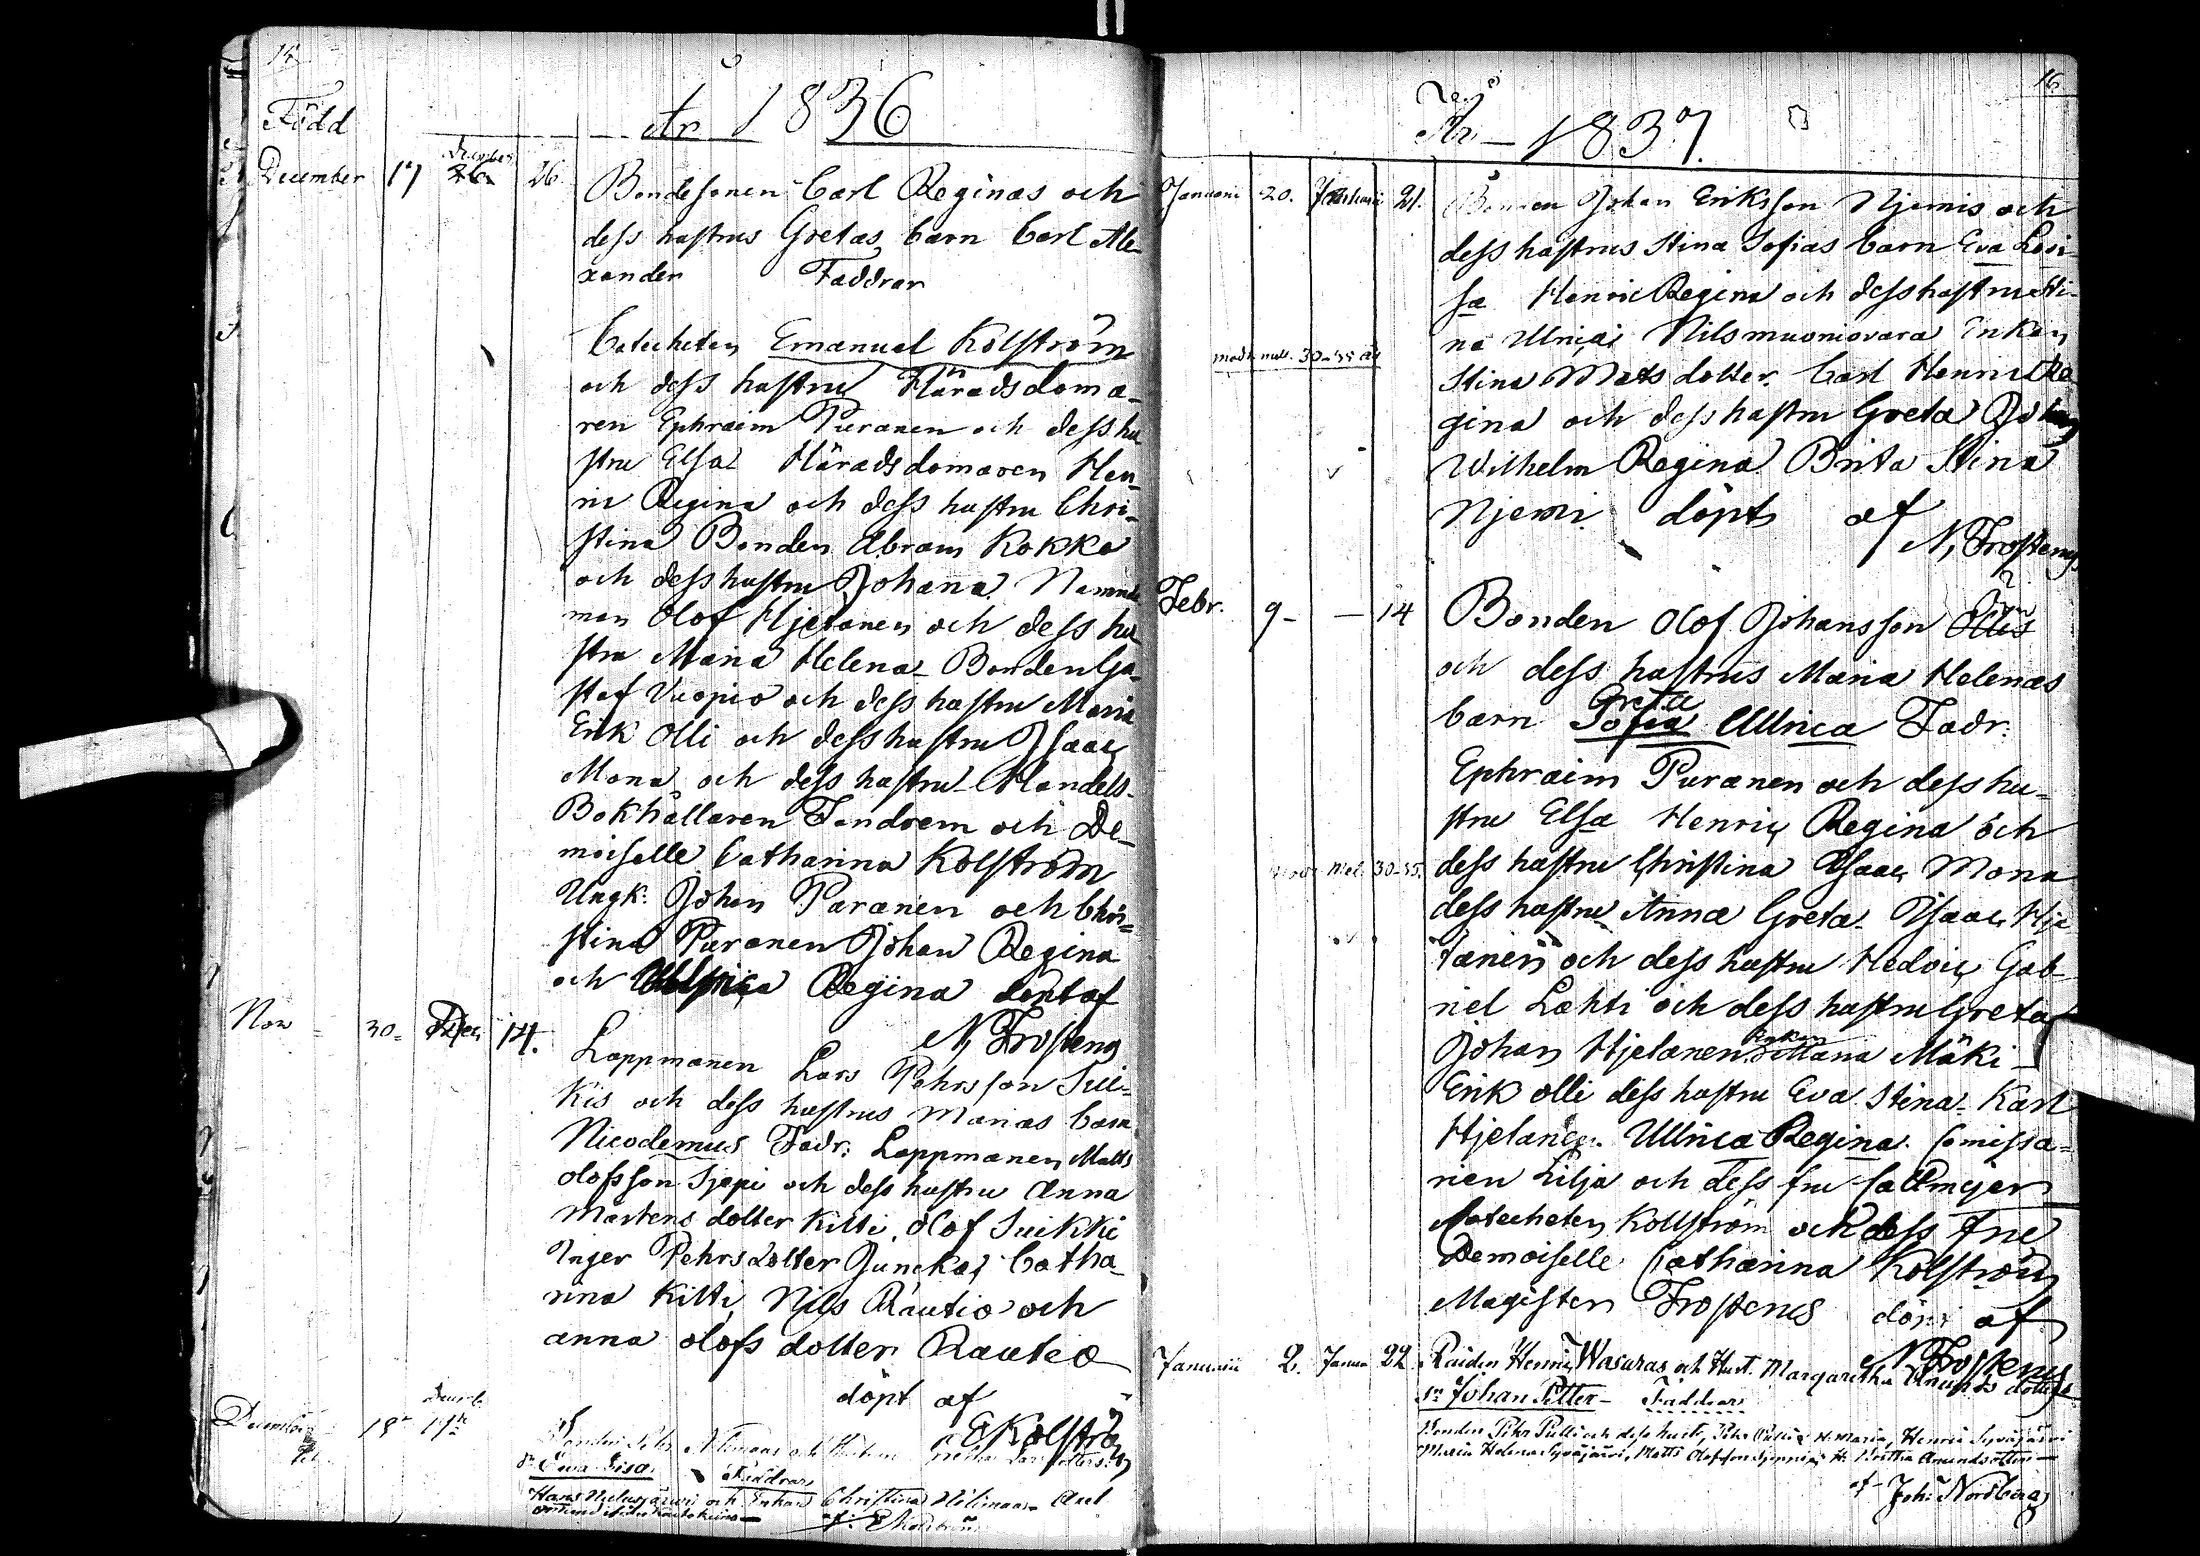 15
År 1836
Född
December 17 December 26 26. Bondesonen Carl Reginas och
dess hustrus Gretas barn Carl Ale-
xander Faddrar
Catecheten Emanuel Kolström
och dess hustru Häradsdoma-
ren Ephraim Puranen och dess hu
stru Elsa Häradsdomaren Hen-
ric Regina och dess hustru Chri-
stina Bonden Abram Kokko
och dess hustru Johana Nämnde
man Olof Hjetanen och dess hu
stru Maria Helena Bonden Gu-
staf Vuopio och dess hustru Maria
Erik Olli och dess hustru Isaac
Mona och dess hustru Handels-
Bokhållaren Fandrem och De-
moiselle Catharina Kolström
Ungk: Johan Puranen och Chri-
stina Puranen Johan Regina
och Ulrica Regina döpt af
N. Frostenus
Nov 30 Dec 14. Lappmanen Lars Pehrsson Sui-
kis och dess hustrus Marias barn
Nicodemus Fadr: Lappmanen Matts
Olofsson Sjepi och dess hustru Anna
Mårtens dotter Kitti, Olof Suikki
Inger Pehrs dotter Juncka, Catha-
rina Kitti, Nils Rautio och
anna olofs dotter Rautio
döpt af
E Kolström
December 18 19
dr Ewa Lisa Faddrar
Hans och Enkan Christina Nilimaa Axel
af: E Kolström
16
År 1837.
Januarii 20. Januarii 21. Bonden Johan Eriksson Njemis och
dess hustrus Stina Sofias barn Eva Lovi-
sa Henric Regina och dess hustru Sti-
na Ulrica Nils muoniovara Enkan
modr. mell. 30-35 år
Stina Mats dotter. Carl Henric Re
gina och dess hustru Greta Johan
Wilhelm Regina Brita Stina
Njemi döpt af
N. Frostenus
Febr. 9 - 14 Bonden Olof Johansson Ollis
och dess hustrus Maria Helenas
Greta
barn Sofia Ullrica Fadr:
Ephraim Puranen och dess hu-
stru Elsa Henric Regina och
mell. 30-35. dess hustru Christina Isaac Mona
dess hustru Anna Greta Isaac Hje
tanen och dess hustru Hedvic Gab-
riel Lahti och dess hustru Greta
Johan Hjetanen Enkan Mäki
Erik olli dess hustru Eva Stina Karl
Hjetanen Ullrica Regina. Comissa-
rien Lilja och dess fru Callmejer
Catecheten Kollström och dess fru
Demoiselle Catharina Kolström
Magister Frostenus döpt af
N Frostenus
Januarii 2. Januar 22 Raiden Henric Wasaras och Hust. Margaretha Anunds dotters
sn Johan Petter Faddrar
Bonden Pehr Pulli och dess hustr, Pehr Pulli H. Maria, Henric Syväjärvi
Maria Helena Syväjärvi, Matts Olofsson H. Britha Anundsdotter
af Joh: Nordberg